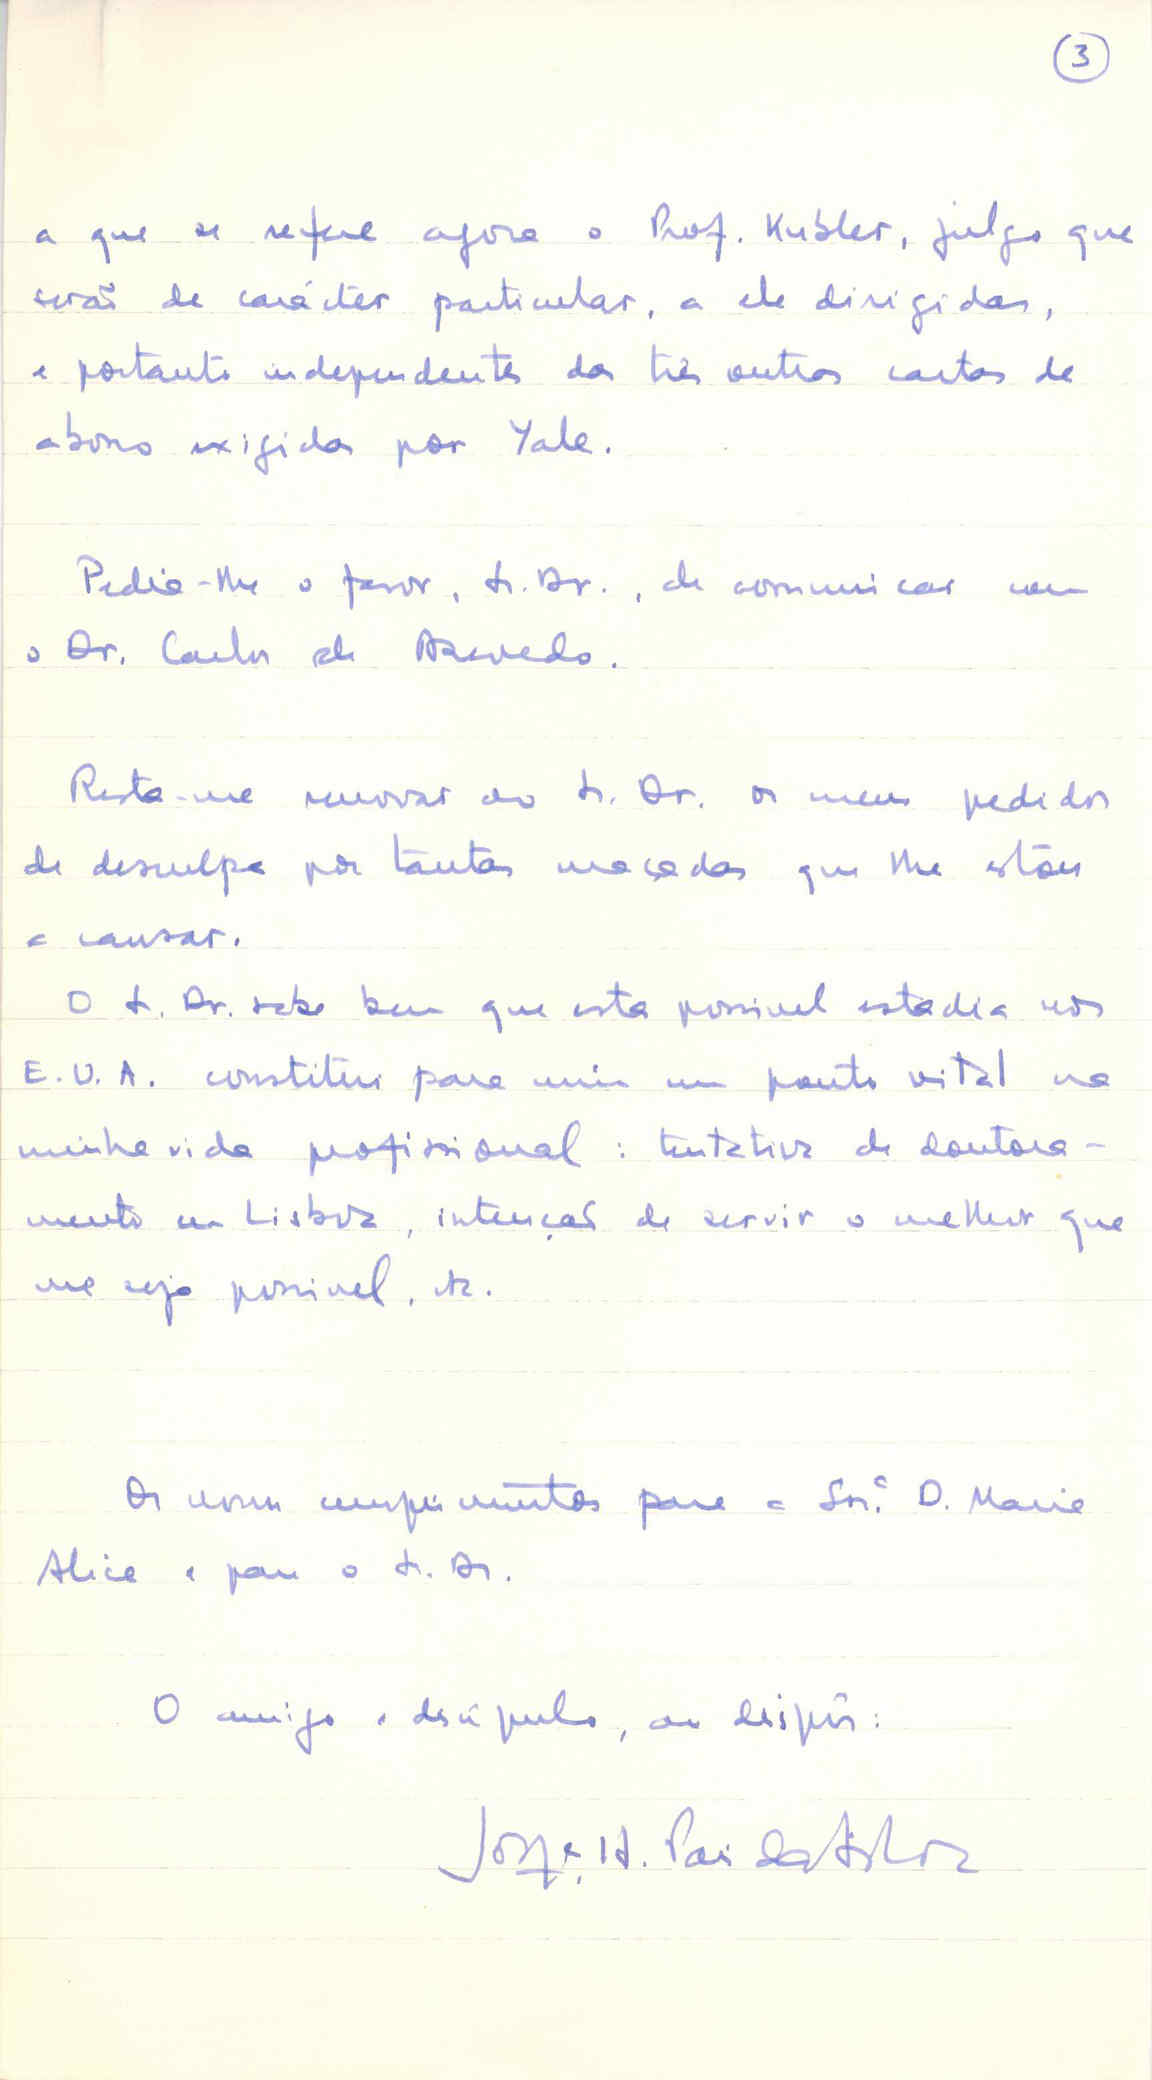 3
a que se refere agora o Prof. Kubler, julgo que
serão de carácter particular, a ele dirigidas,
e portanto independentes das três outras cartas de
abono exigidas por Yale.
Pedia-lhe o favor, Sr. Dr., de comunicar com
o Dr. Carlos de Azevedo.
Resta-me renovar ao Sr. Dr. os meus pedidos
de desculpa por tantas maçadas que lhe estou
a causar.
O Sr. Dr. sabe bem que esta possivel estadia nos
E.U.A. constitui para mim um ponto vital na
minha vida profissional: tentativa de doutora-
mento em Lisboa, intenção de servir o melhor que
me seja possivel, etc.
Os nossos cumprimentos para a Snrª D. Maria
Alice e para o Sr. Dr.
O amigo e discípulo, ao dispôr:
Jorge H. Pais da Silva